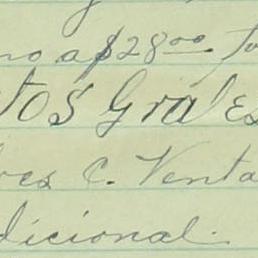 no a $28.00
tos Grales
C. Venta
dicional.